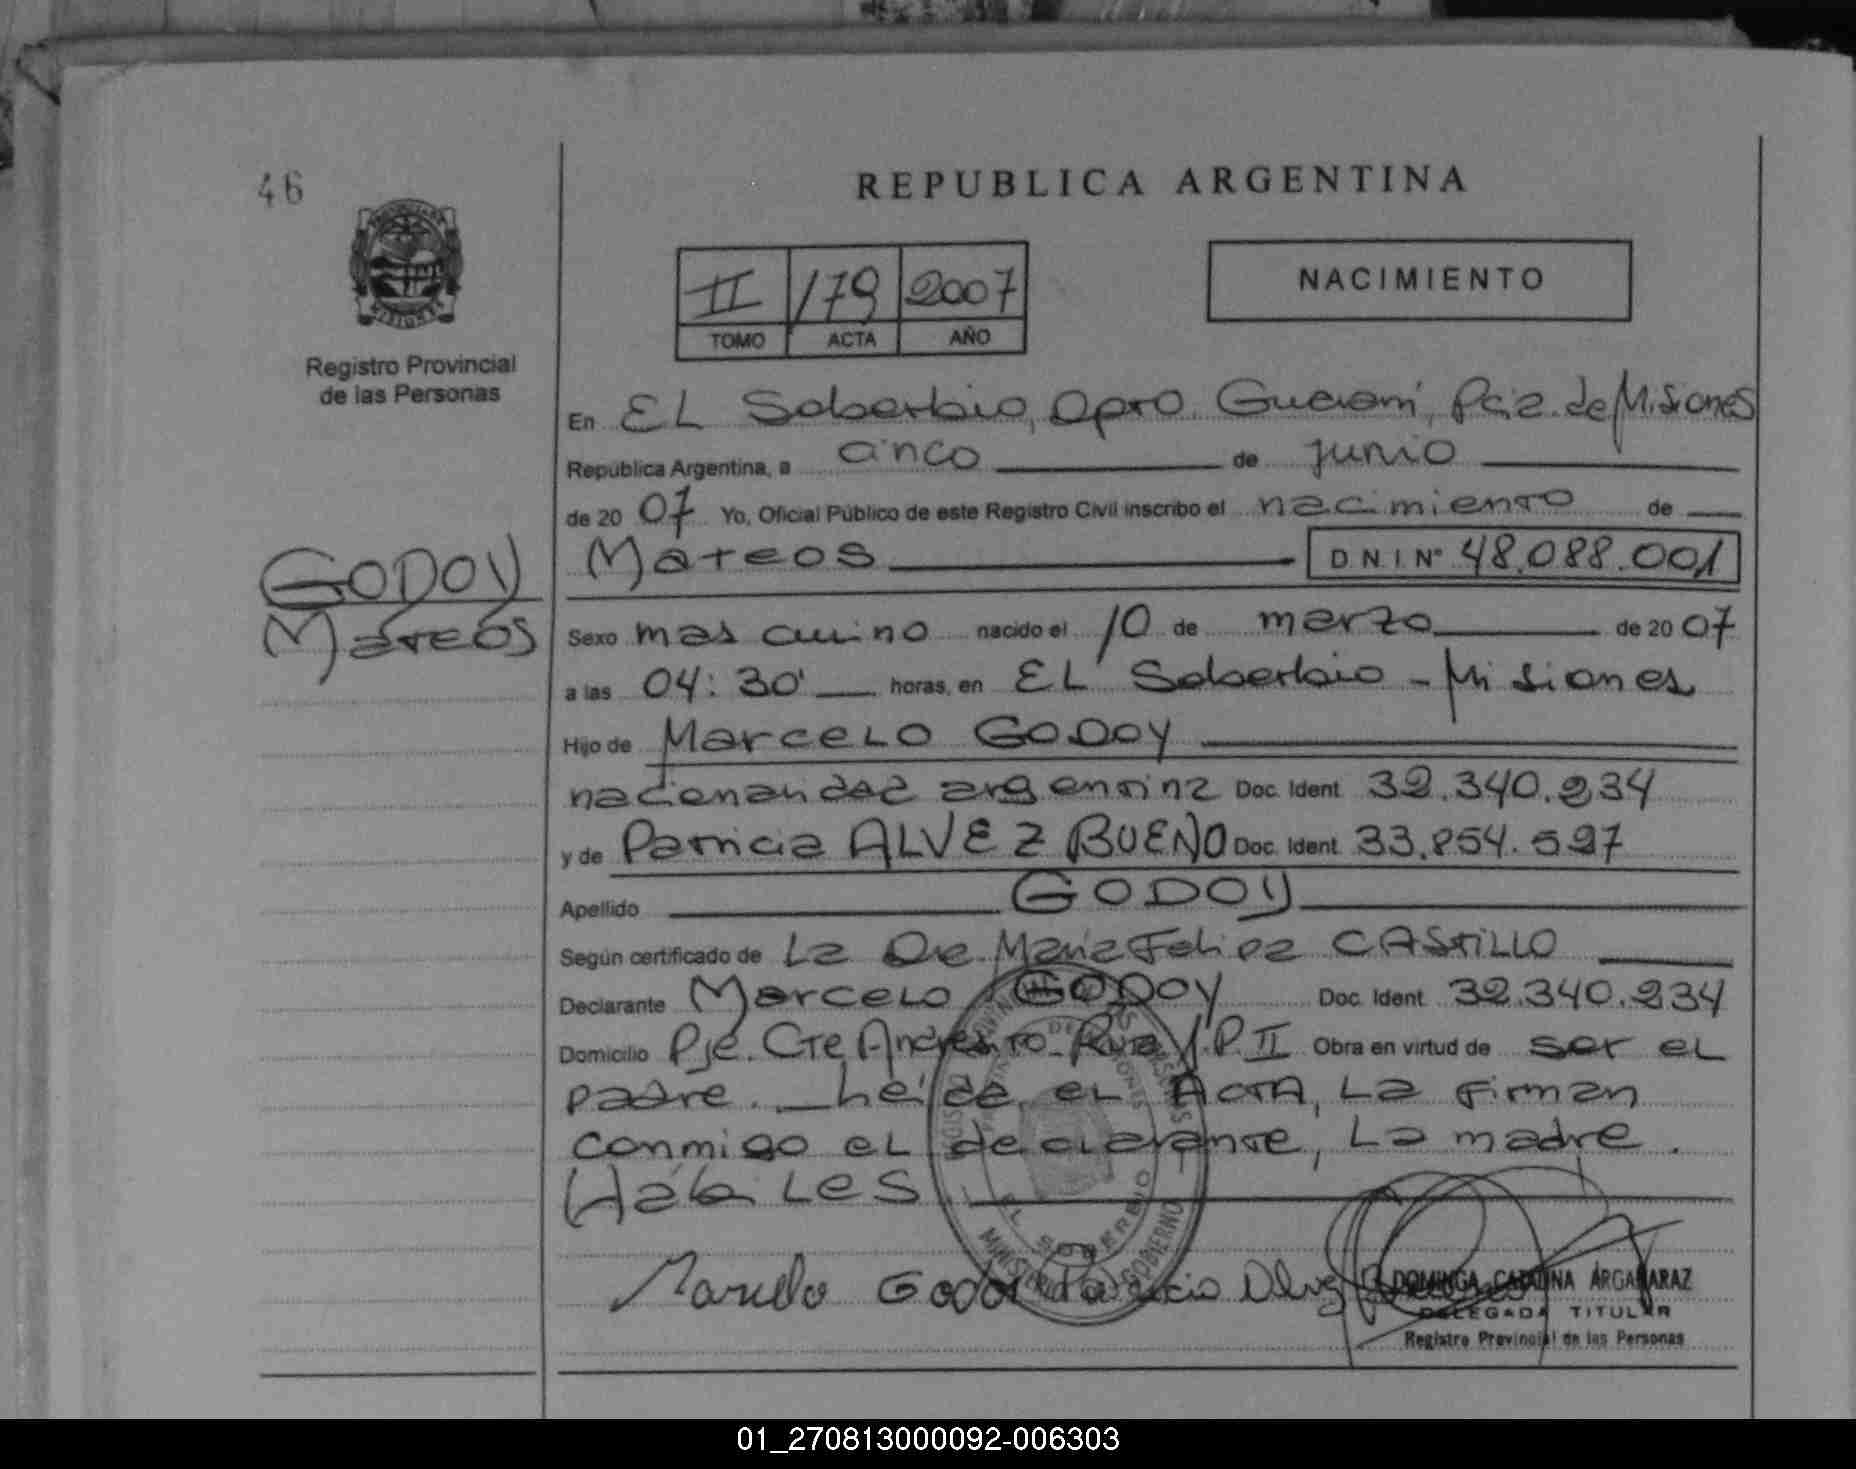 46
REPUBLICA ARGENTINA
PROVINCIA DE MISIONES
II 179 2007
TOMO ACTA AÑO
NACIMIENTO
Registro Provincial
de las Personas
En EL Soberbio, Dpto. Guaraní, Pcia. de Misiones
República Argentina, a cinco de junio
de 20 07 Yo, Oficial Público de este Registro Civil inscribo el nacimiento de
Mateos D.N.I. Nº 48.088.001
GODOY
Mateos
Sexo masculino nacido el 10 de marzo de 20 07
a las 04:30' horas, en EL Soberbio - Misiones
Hijo de Marcelo GODOY
nacionalidad argentina Doc. Ident. 32.340.234
y de Patricia ALVEZ BUENO Doc. Ident. 33.854.597
Apellido GODOY
Según certificado de La Dra. María Felipa CASTILLO
Declarante Marcelo GODOY Doc. Ident. 32.340.234
Domicilio Pje. Cte. Andresito. Ruta P. II Obra en virtud de ser el
padre. Leída el Acta, La firman
conmigo el declarante, La madre.
Hábiles
EL SOBERBIO
MINISTERIO GOBIERNO
Marcelo Godoy Patricia Alvez
DOMINGA CATALINA ARGAÑARAZ
DELEGADA TITULAR
Registro Provincial de las Personas
01_270813000092-006303